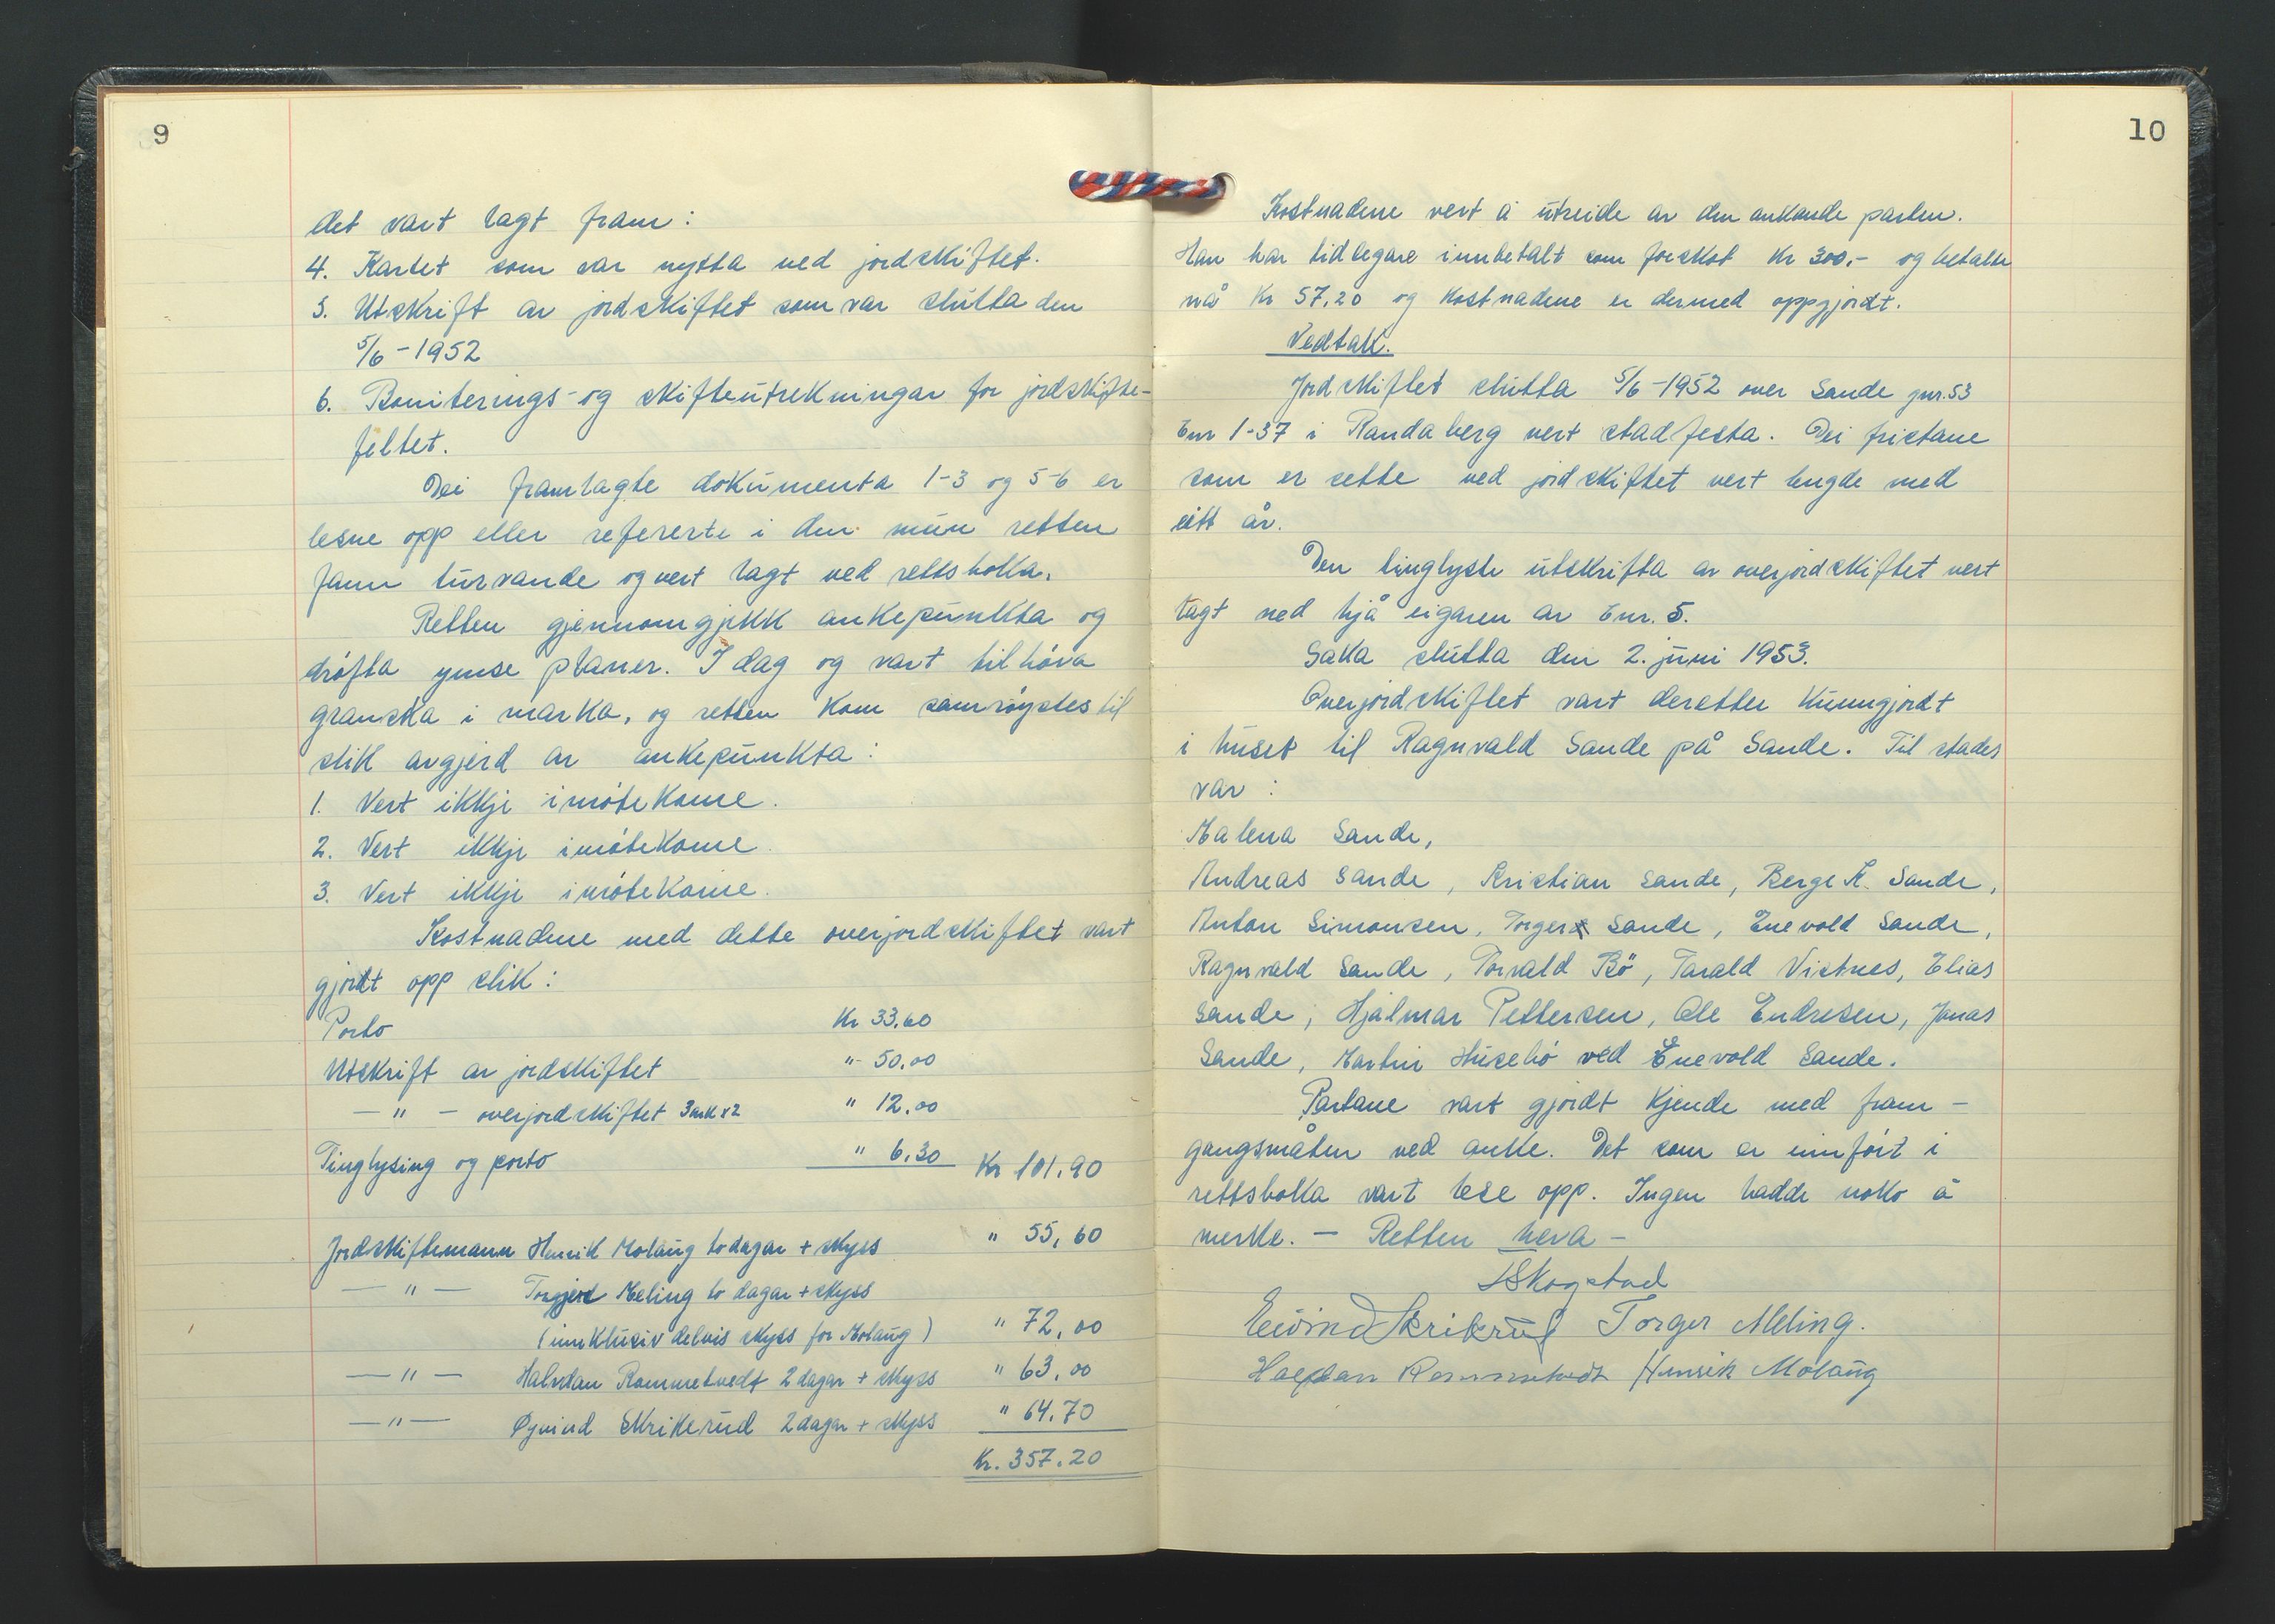 9
det vart lagt fram:
4. Kartet som var nytta ved jordskiftet.
5. Utskrift av jordskiftet som var slutta den
5/6-1952
6. Boniterings- og skifteutrekningar for jordskifte-
feltet.
Dei framlagte dokumenta 1-3 og 5-6 er
lesne opp eller refererte i den mun retten
fann turvande og vert lagt ved rettsboka.
Retten gjennomgjekk ankepunkta og
drøfta ymse planer. I dag og vart tilhøva
granska i marka, og retten kom samrøystes til
slik avgjerd av ankepunkta:
1. Vert ikkje imøtekome.
2. Vert ikkje imøtekome.
3. Vert ikkje imøtekome.
Kostnadene med dette overjordskiftet vart
gjordt opp slik:
Porto Kr 33,60
Utskrift av jordskiftet " 50,00
— " — overjordskiftet 3 ark x2 " 12,00
Tinglysing og porto " 6,30 Kr 101,90
Jordskiftemann Henrik Molaug to dagar + skyss " 55,60
— " — Torgjerd Meling to dagar + skyss
(innklusiv delvis skyss for Molaug) " 72,00
— " — Halvdan Rommetvedt 2 dagar + skyss " 63,00
— " — Øyvind Skrikerud 2 dagar + skyss " 64,70
Kr. 357,20
10
Kostnadene vert å utreide av den ankande parten.
Han har tidlegare innbetalt som forskot Kr 300,- og betalte
nå Kr 57,20 og kostnadene er dermed oppgjordt.
Vedtak.
Jordskiftet slutta 5/6-1952 over Sande gnr. 53
bnr 1-37 i Randaberg vert stadfesta. Dei fristane
som er sette ved jordskiftet vert lengde med
eitt år.
Den tinglyste utskrifta av overjordskiftet vert
lagt ned hjå eigaren av bnr. 5.
Saka slutta den 2. juni 1953.
Overjordskiftet vart deretter kunngjordt
i huset til Ragnvald Sande på Sande. Til stades
var:
Malena Sande,
Andreas Sande, Kristian Sande, Berge K. Sande,
Anton Simonsen, Torger Sande, Enevold Sande,
Ragnvald Sande, Torvald Bö, Tarald Vistnes, Elias
Sande, Hjalmar Pettersen, Ole Endresen, Jonas
Sande, Martin Husebø ved Enevold Sande.
Partane vart gjordt kjende med fram-
gangsmåten ved anke. Det som er innført i
rettsboka vart lese opp. Ingen hadde noko å
merke. — Retten heva —
Skogstad
Eivind Skrikrud Torger Meling.
Halfdan Rommetvedt Henrik Molaug